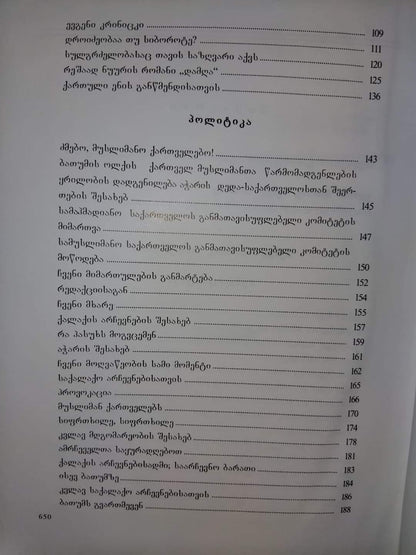 ევგენი კრინიცკი 109
დროიძეობაა თუ სიბოროტე? 111
სულგრძელობასაც თავის საზღვარი აქვს 120
რეშაად ნუურის რომანი „დამღა“ 125
ქართული ენის განწმენდისათვის 136
პოლიტიკა
ძმებო, მუსლიმანო ქართველებო! 143
ბათუმის ოლქის ქართველ მუსლიმანთა წარმომადგენლების
ყრილობის დადგენილება აჭარის დედა-საქართველოსთან შეერ-
თების შესახებ 145
სამაჰმადიანო საქართველოს განმათავისუფლებელი კომიტეტის
მიმართვა 147
სამუსლიმანო საქართველოს განმათავისუფლებელი კომიტეტის
მოწოდება 150
ჩვენი მიმართულების განმარტება 152
რედაქციისაგან 154
ჩვენი მხარე 155
ქალაქის არჩევნების შესახებ 157
რა პასუხს მოგვცემენ 159
აჭარის შესახებ 161
ჩვენი მოღვაწეობის სამი მომენტი 162
საქალაქო არჩევნებისათვის 165
პროვოკაცია 166
მუსლიმან ქართველებს 170
სიფრთხილე, სიფრთხილე 174
კვლავ მდგომარეობის შესახებ 178
ამრჩეველთა საყურადღებოთ 181
ქალაქის არჩევნებისადმი; საარჩევნო ბარათი 183
ისევ ბათუმზე 184
კვლავ საქალაქო არჩევნებისათვის 186
ბათუმს გვართმევენ 188
650